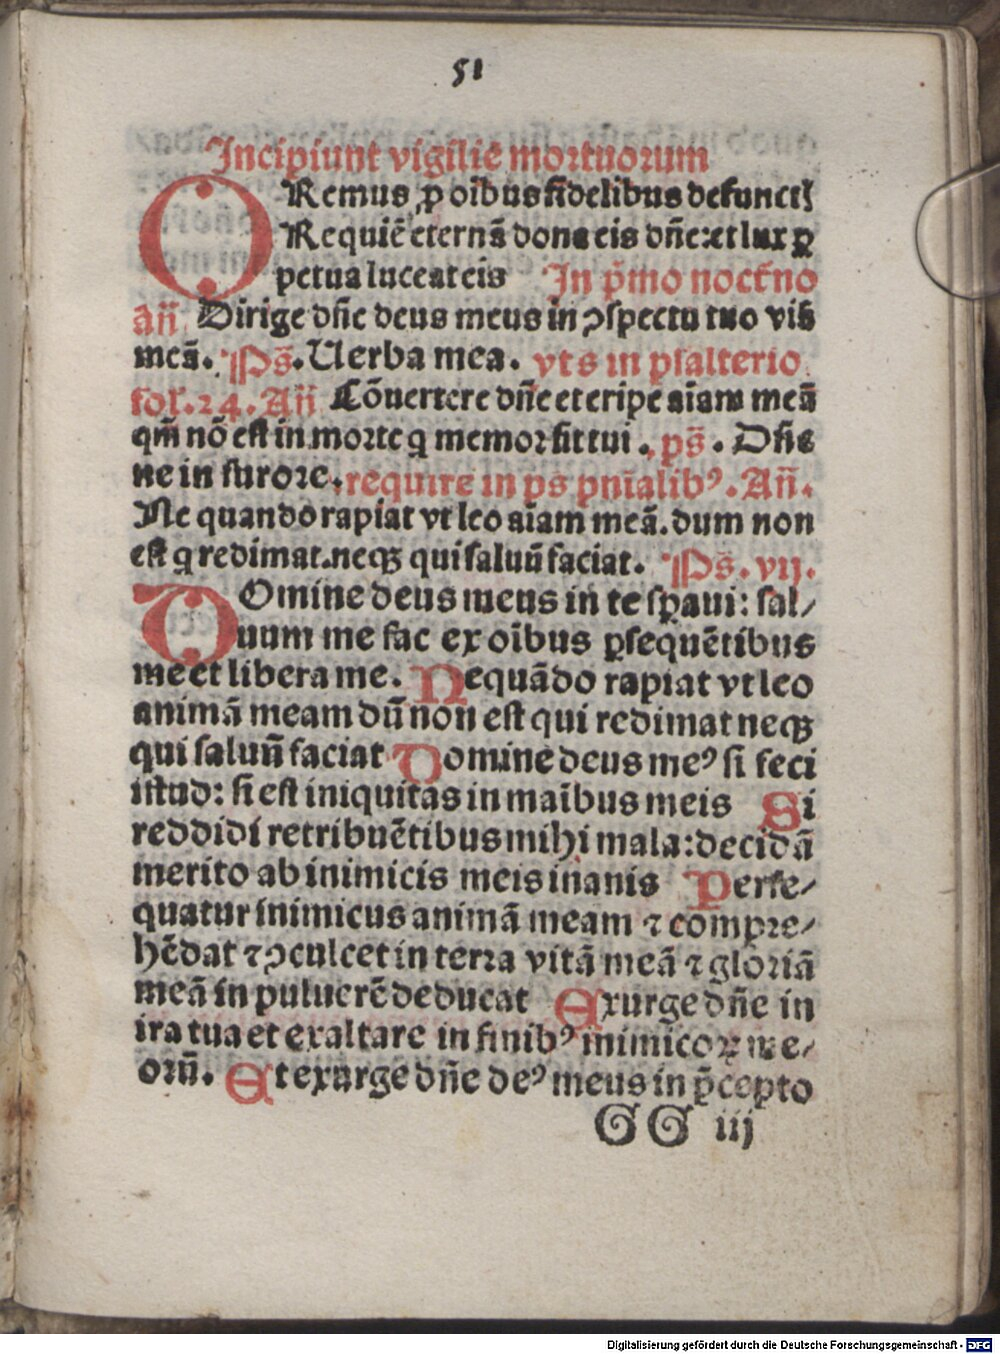 51
Incipiunt vigilie mortuorum
ORemus ꝓ oībus fidelibus defunctꝭ
Requiē eternā dona eis dn̄e: et lux ꝑ
petua luceat eis In p̄mo nocťno
an̄ Dirige dn̄e deus meus in ꝯspectu tuo viā
meā. Ps̄. Uerba mea. vts in psalterio
fol. 24. An̄ Cōuertere dn̄e et eripe aīam meā
qm̄ nō est in morte q̇ memor sit tui. ps̄. Dn̄e
ne in furore. require in ps̄ pnīalibꝰ. An̄.
Ne quando rapiat vt leo aīam meā. dum non
est q̇ redimat. neqꝫ qui saluū faciat. Ps̄. vij.
DOmine deus meus in te sꝑaui: sal⸗
uum me fac ex oībus ꝑsequētibus
me et libera me. Nequādo rapiat vt leo
animā meam dū non est qui redimat neqꝫ
qui saluū faciat Domine deus meꝰ si feci
istud: si est iniquitas in maībus meis Si
reddidi retribuētibus mihi mala: decidā
merito ab inimicis meis inanis Perse⸗
quatur inimicus animā meam ⁊ compre⸗
hēdat ⁊ ꝯculcet in terra vitā meā ⁊ gloriā
meā in puluerē deducat Exurge dn̄e in
ira tua et exaltare in finibꝰ inimicoꝝ me⸗
orū. Et exurge dn̄e deꝰ meus in p̄cepto
GG iij
Digitalisierung gefördert durch die Deutsche Forschungsgemeinschaft - DFG